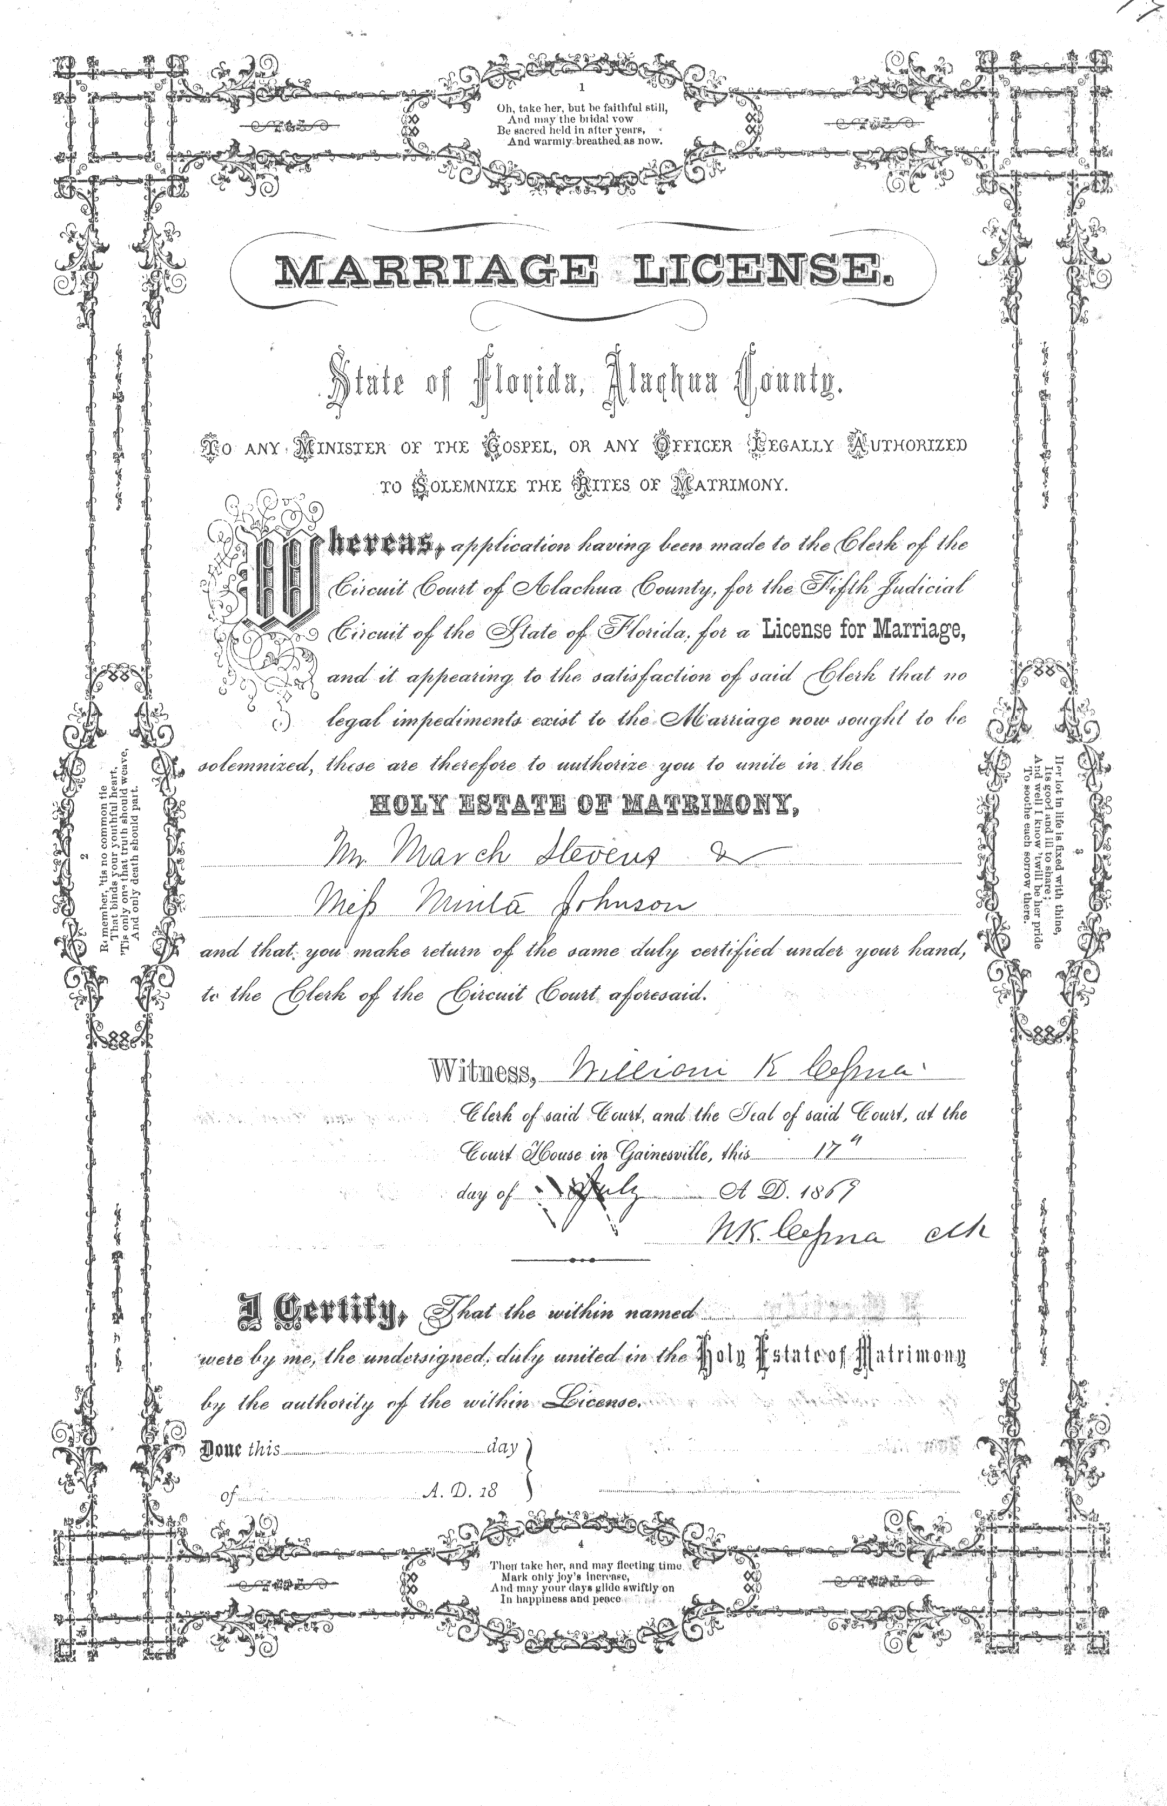 1
Oh, take her, but be faithful still,
And may the bridal vow
Be sacred held in after years,
And warmly breathed as now.
MARRIAGE LICENSE.
State of Florida, Alachua County.
TO ANY MINISTER OF THE GOSPEL, OR ANY OFFICER LEGALLY AUTHORIZED
TO SOLEMNIZE THE RITES OF MATRIMONY.
Whereas, application having been made to the Clerk of the
Circuit Court of Alachua County, for the Fifth Judicial
Circuit of the State of Florida, for a License for Marriage,
and it appearing to the satisfaction of said Clerk that no
legal impediments exist to the Marriage now sought to be
solemnized, these are therefore to authorize you to unite in the
HOLY ESTATE OF MATRIMONY,
Mr March Stevens &
Miss Minta Johnson
and that you make return of the same duly certified under your hand,
to the Clerk of the Circuit Court aforesaid.
Witness, William K Cessna
Clerk of said Court, and the Seal of said Court, at the
Court House in Gainesville, this 17"
day of July A. D. 1869
W.K. Cessna Clk
I Certify, That the within named
were by me, the undersigned, duly united in the Holy Estate of Matrimony
by the authority of the within License.
Done this day
of A. D. 18
2
Remember, 'tis no common tie
That binds your youthful heart,
'Tis only one that truth should weave,
And only death should part.
3
Her lot in life is fixed with thine,
Its good and ill to share;
And well I know 'twill be her pride
To soothe each sorrow there.
4
Then take her, and may fleeting time
Mark only joy's increase,
And may your days glide swiftly on
In happiness and peace